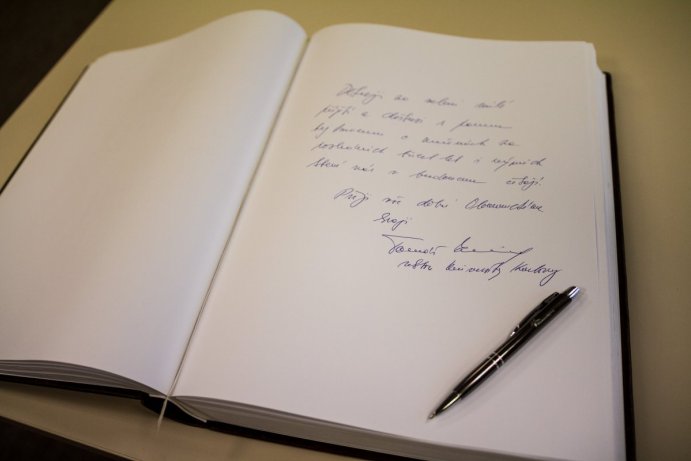 Děkuji za velmi milé
přijetí a diskusi s panem
hejtmanem o změnách za
posledních třicet let i výzvách
které nás v budoucnu čekají.
Přeji vše dobré Olomouckému
kraji
Tomáš Zima
rektor Univerzity Karlovy